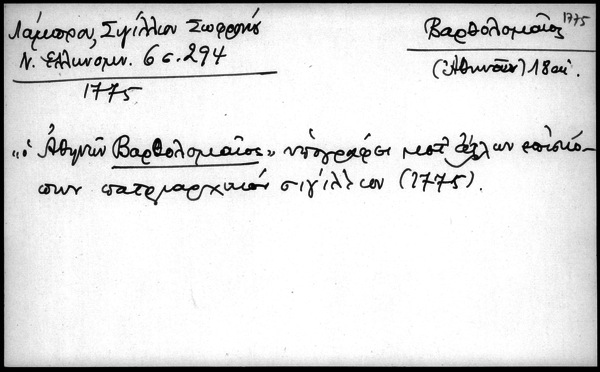 Λάμπρου, Σιγίλλιον Σωφρονίου
Ν. Ελληνομν. 6 σ. 294
1775
Βαρθολομαῖος 1775
(Ἀθηνῶν) 18 αἰ.
"ὁ Ἀθηνῶν Βαρθολομαῖος" ὑπογράφει μετ' ἄλλων ἐπισκό-
πων πατριαρχικόν σιγίλλιον (1775).